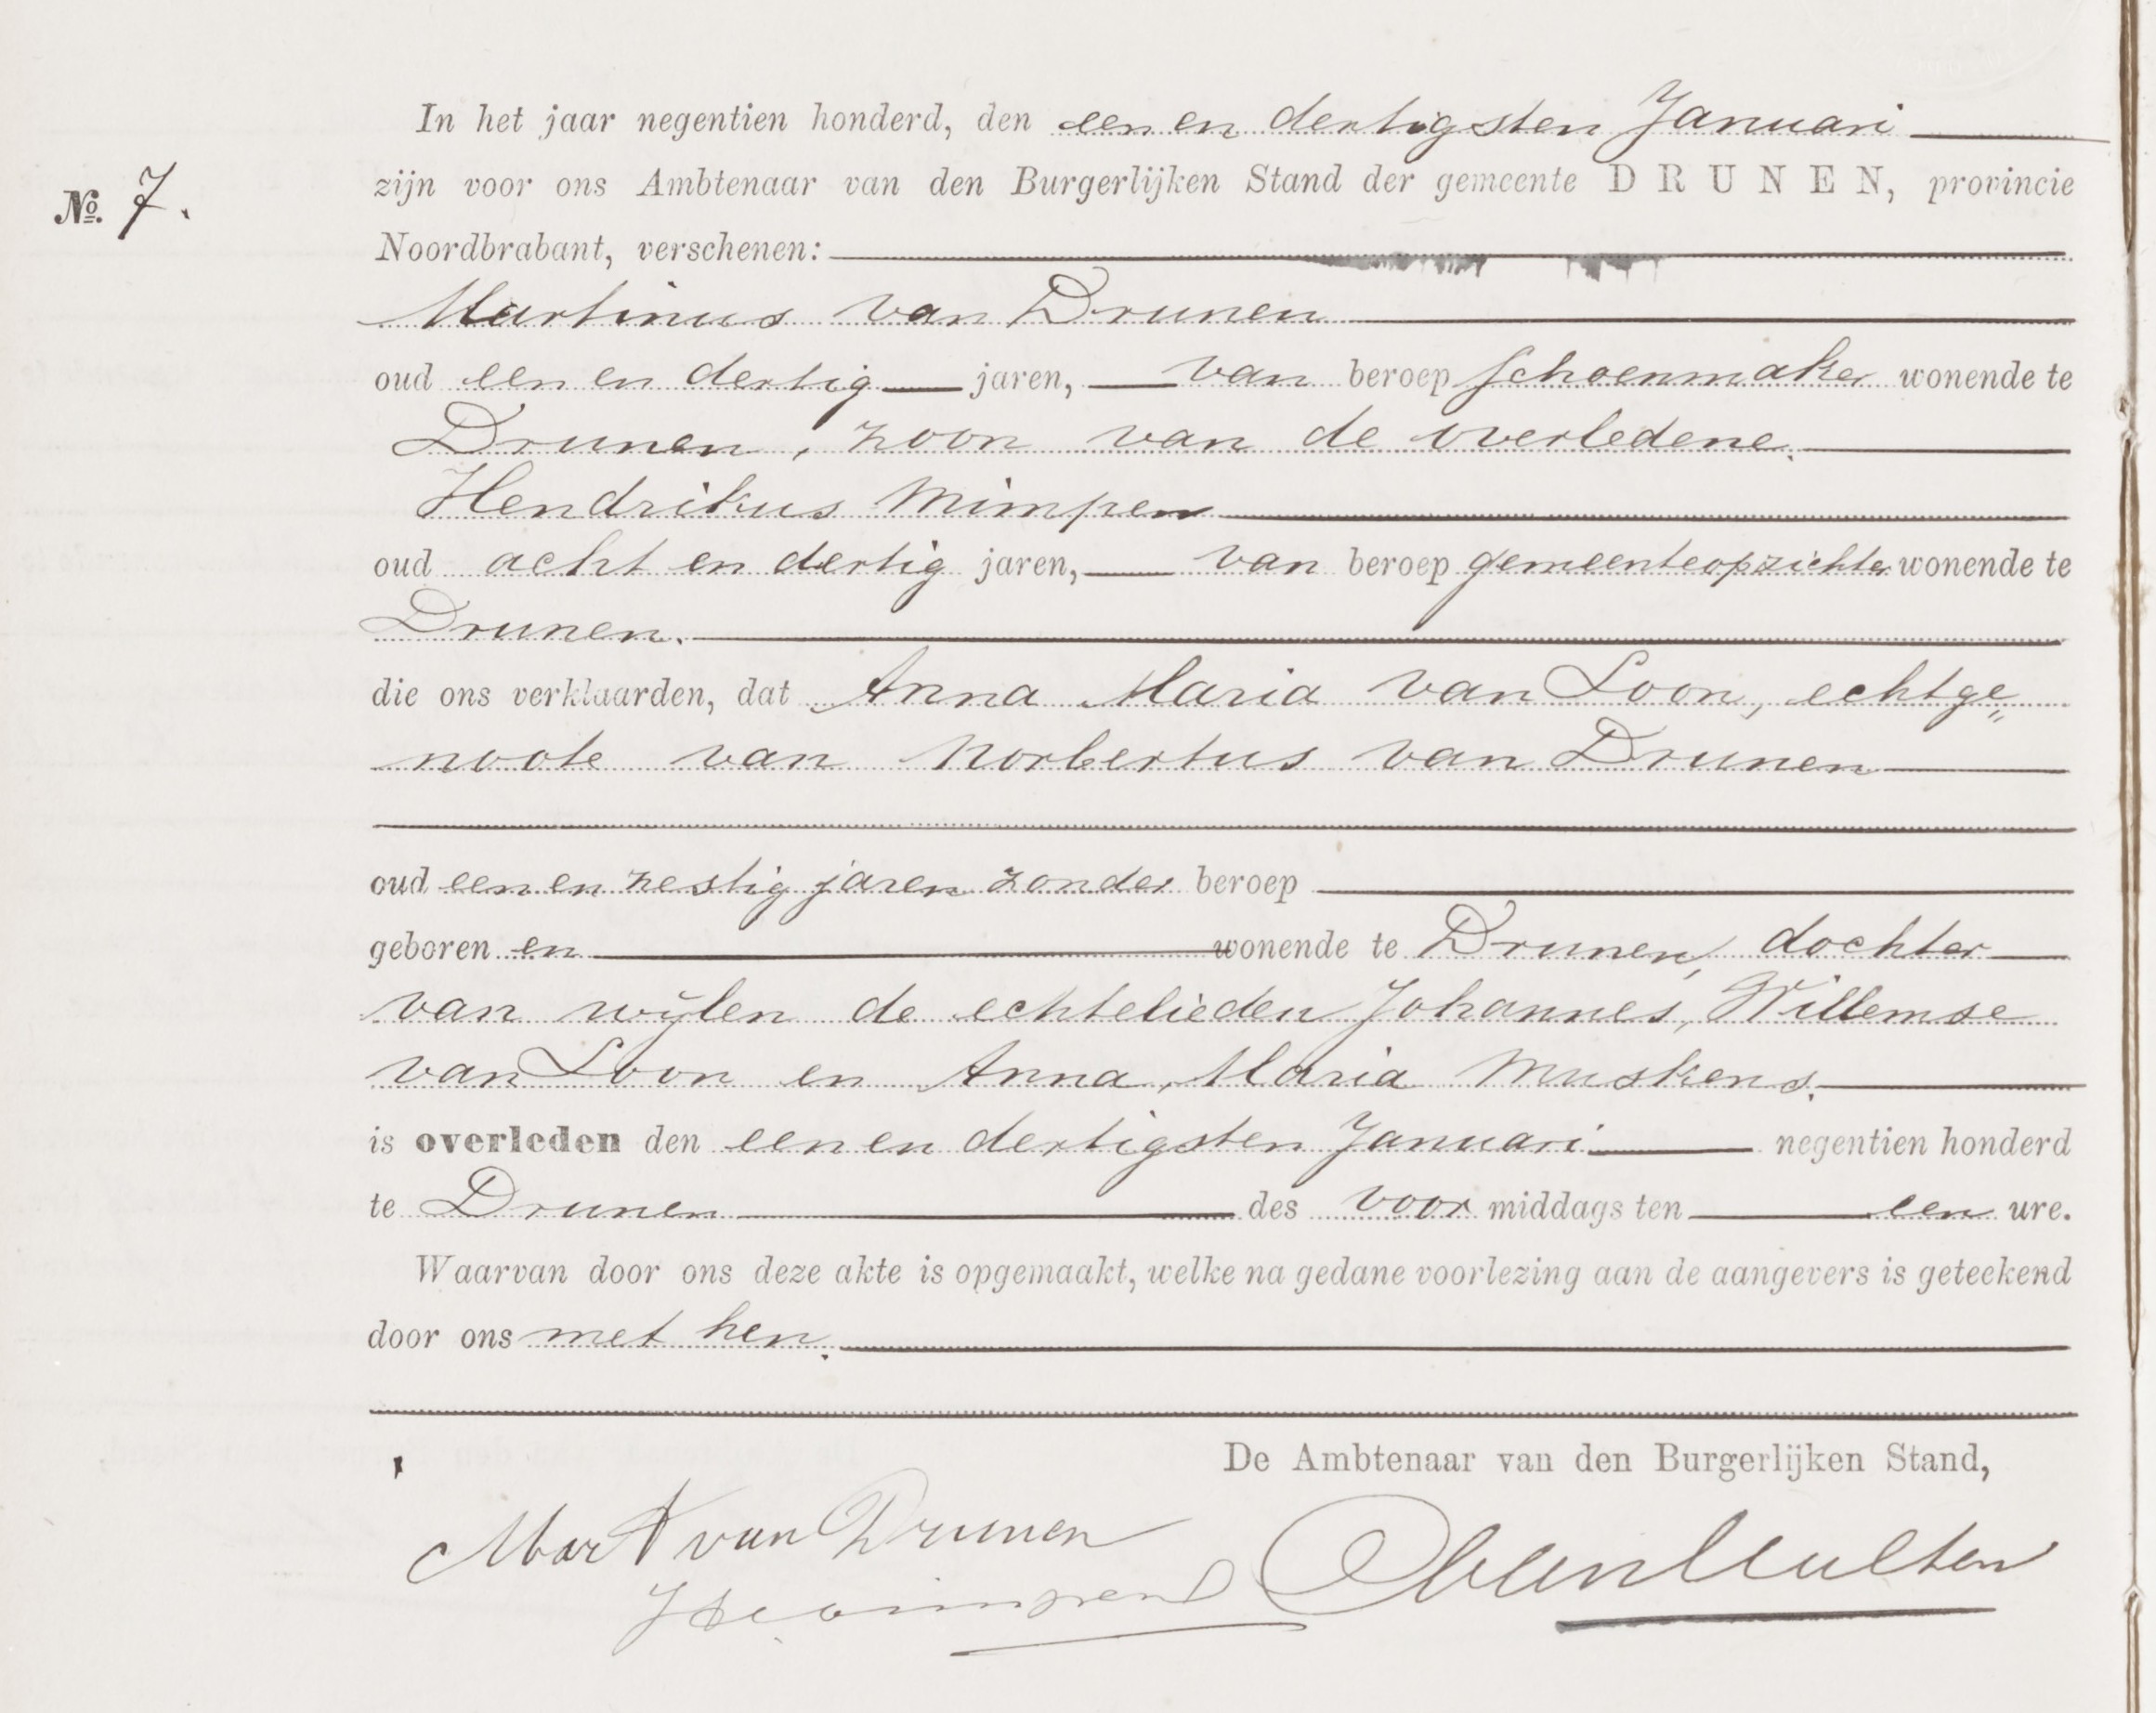 In het jaar negentien honderd, den een en dertigsten Januari
No. 7.
zijn voor ons Ambtenaar van den Burgerlijken Stand der gemeente DRUNEN, provincie
Noordbrabant, verschenen:
Martinus van Drunen
oud een en dertig jaren, van beroep schoenmaker wonende te
Drunen, zoon van de overledene.
Hendrikus Mimpen
oud acht en dertig jaren, van beroep gemeenteopzichter wonende te
Drunen.
die ons verklaarden, dat Anna Maria van Loon, echtge„
noote van Norbertus van Drunen
oud een en zestig jaren zonder beroep
geboren en wonende te Drunen, dochter
van wijlen de echtelieden Johannes, Willemse
van Loon en Anna, Maria Muskens.
is overleden den een en dertigsten Januari negentien honderd
te Drunen des voor middags ten een ure.
Waarvan door ons deze akte is opgemaakt, welke na gedane voorlezing aan de aangevers is geteekend
door ons met hen.
De Ambtenaar van den Burgerlijken Stand,
Mart van Drunen
HMimpen